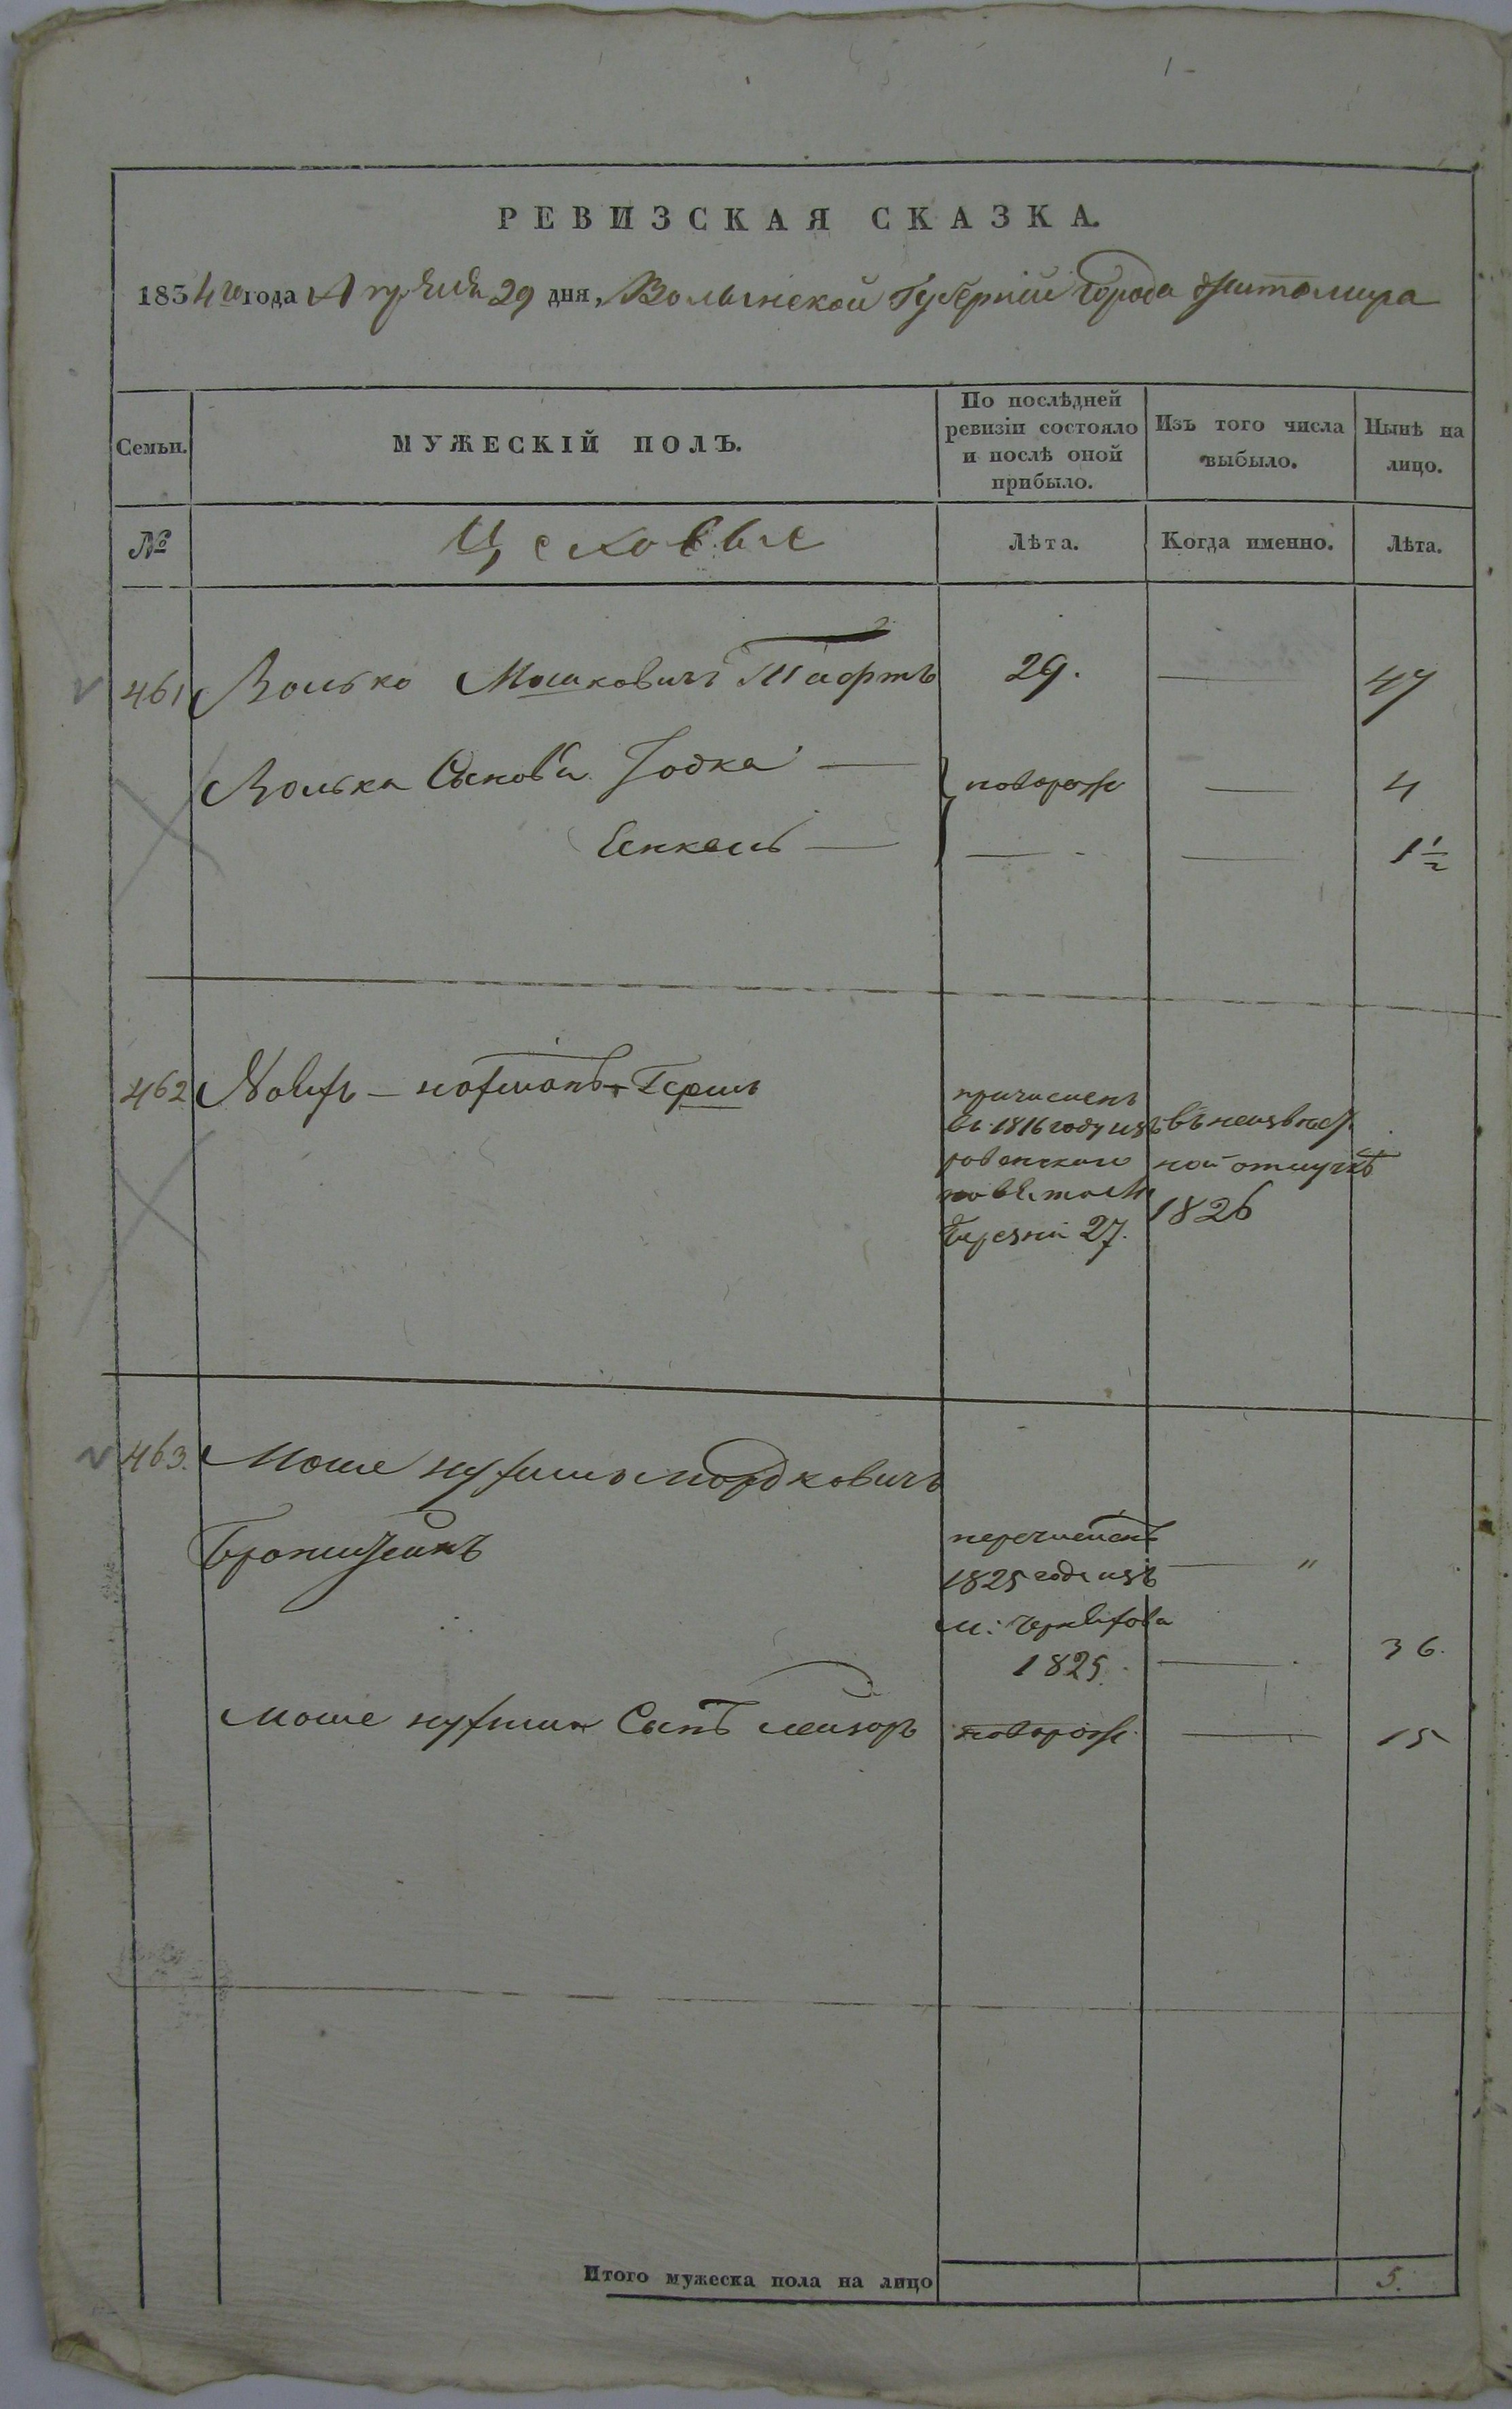 РЕВИЗСКАЯ СКАЗКА.
1834 го года Апрѣля 29 дня, Волынской Губерніи Города Житомира
Семьи.
МУЖЕСКІЙ ПОЛЪ.
По послѣдней
ревизіи состояло
и послѣ оной
прибыло.
Изъ того числа
выбыло.
Нынѣ на
лицо.
№
Цеховые
Лѣта.
Когда именно.
Лѣта.
461 Волько Мошковичъ 29. — 47
Волька Сыновья Іодка — — 4
— — — 1½
462 Герш
причисленъ
въ 1816 году изъ
ровенского
Березни 27.
въ неизвѣст
ной отлучкѣ
1826
463. Моше мордковичъ
перечисленъ
1825 года изъ — "
м:
1825. — 36.
Моше Сынъ лейзоръ — 15
Итого мужеска пола на лицо 5.